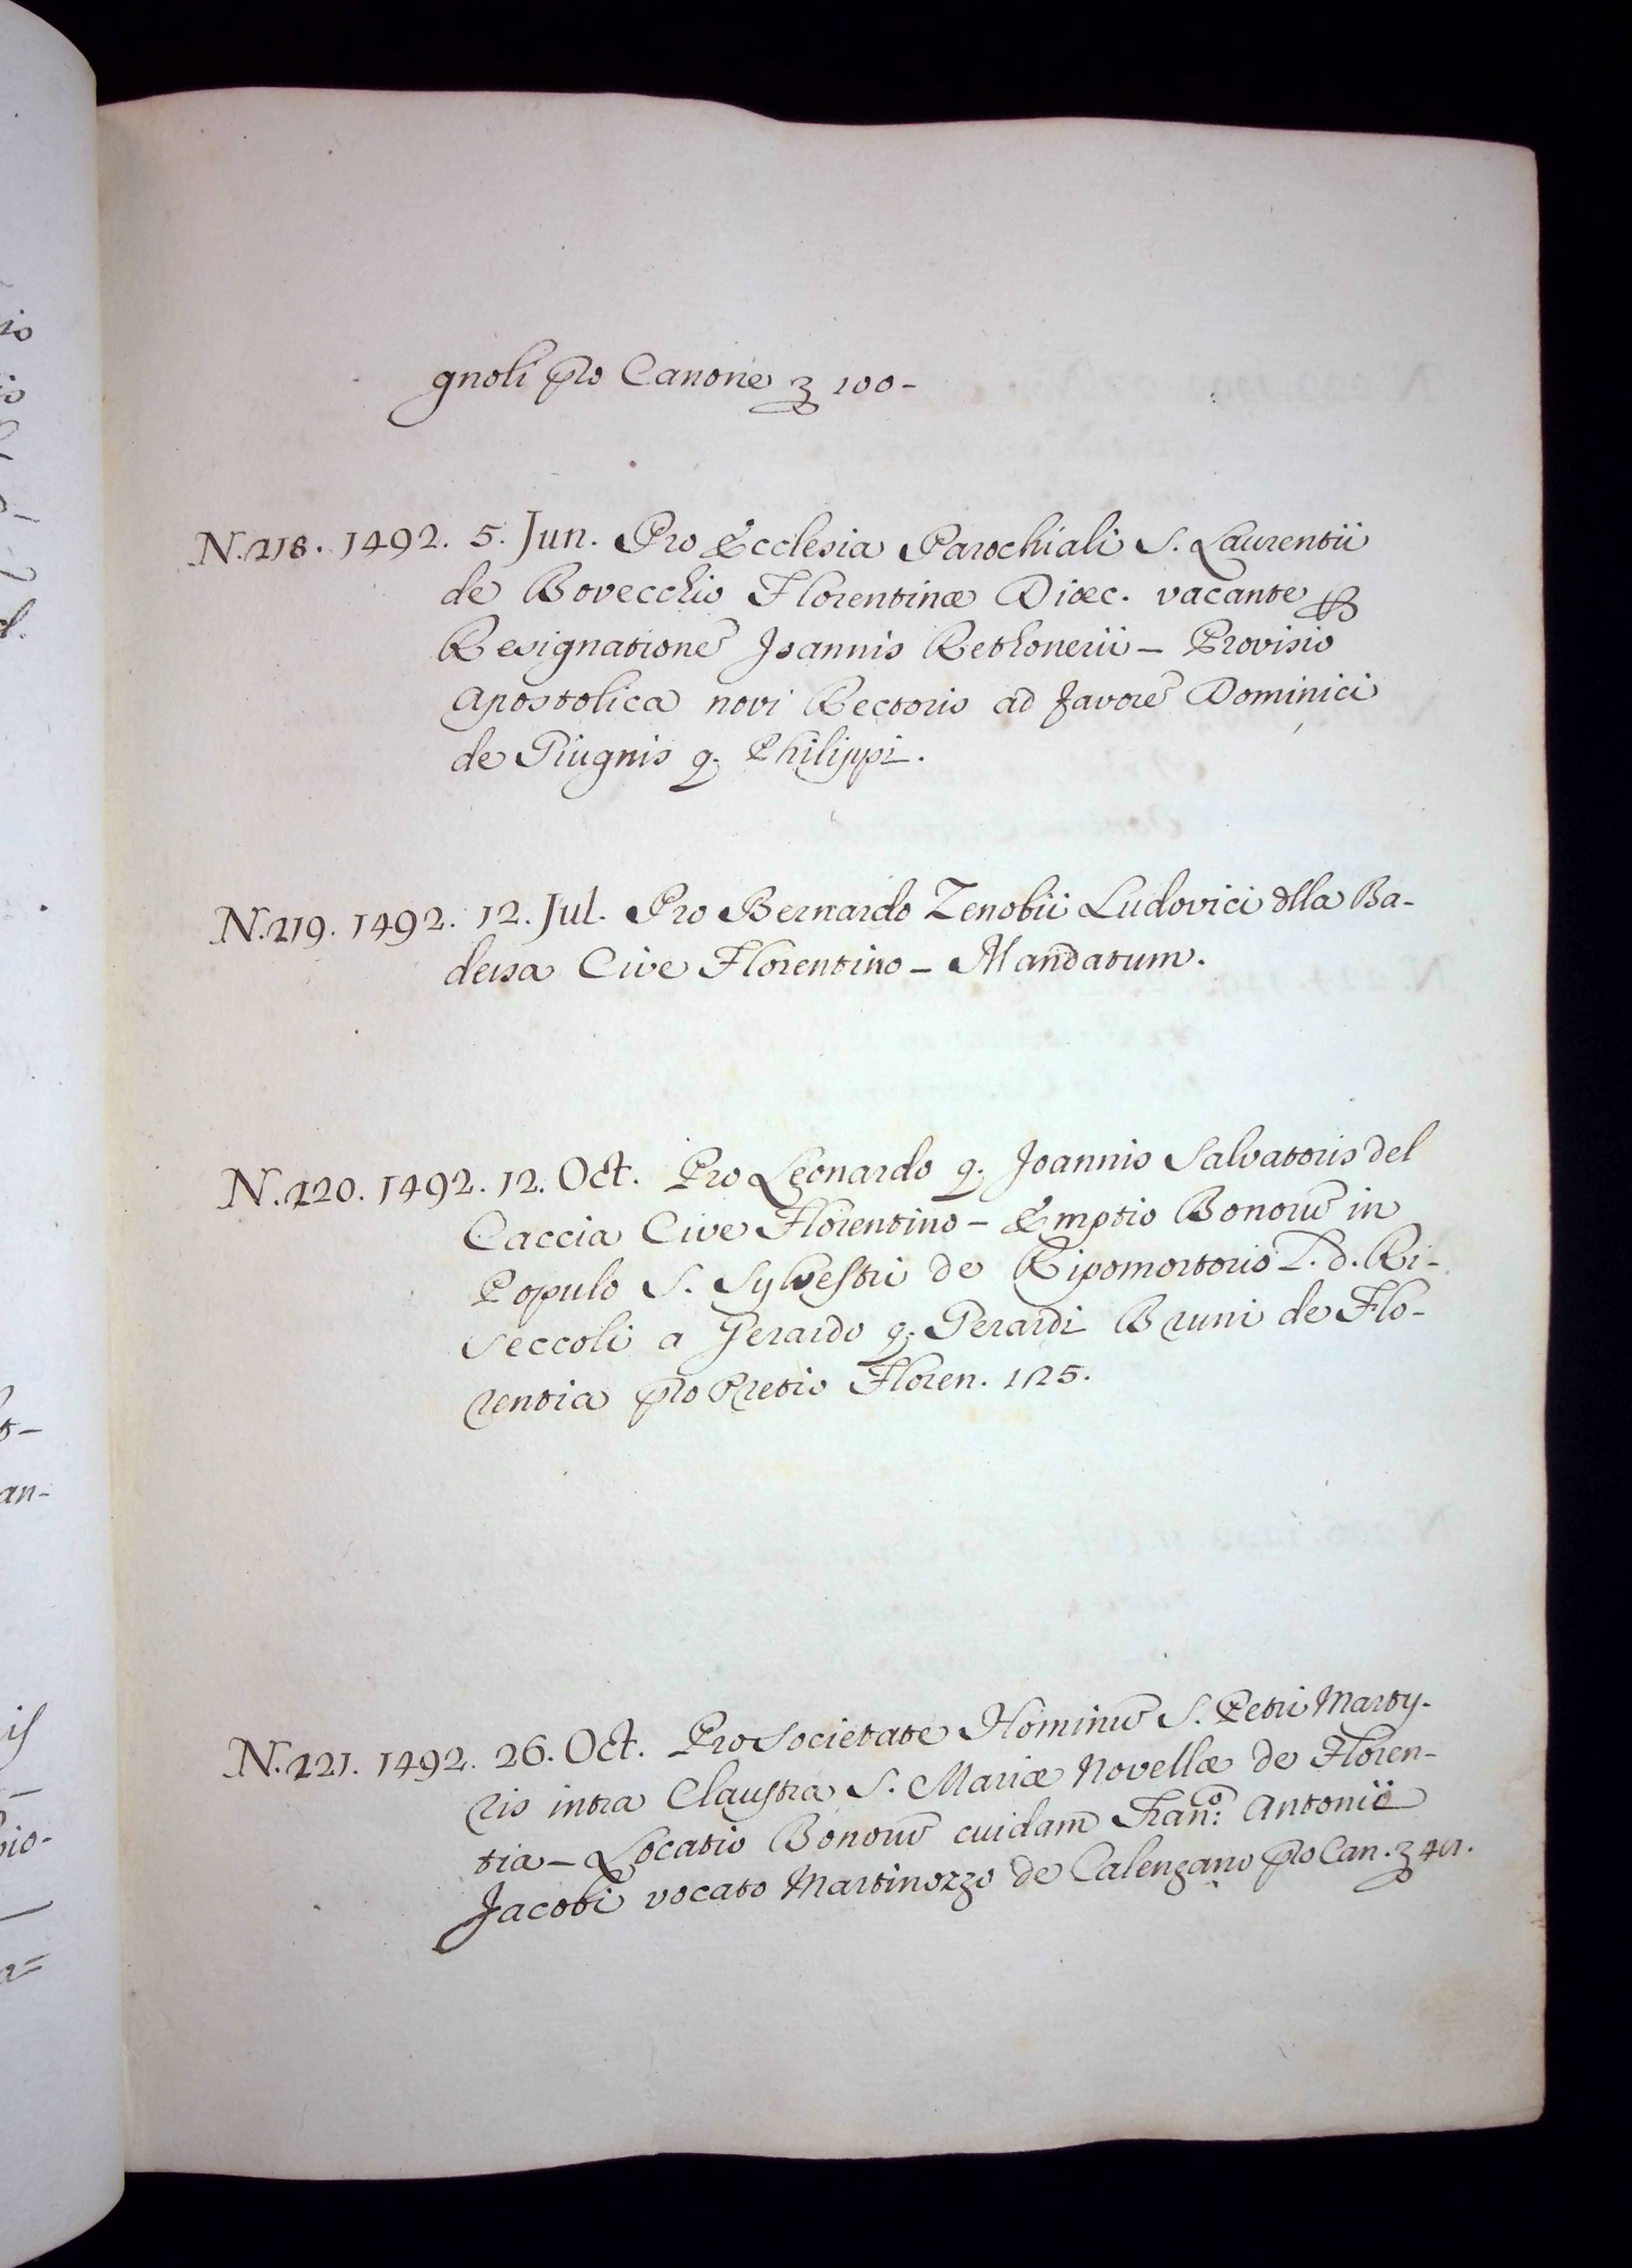 gnoli pro Canone ʒ 100-
N.218. 1492. 5. Jun. Pro Ecclesia Parochiali S. Laurentii
de Bovecchio Florentinæ Diœc. vacante p
Resignatione Joannis Rethonerii – Provisio
Apostolica novi Rectoris ad favorē Dominici
de Giugnis q. Philippi.
N.219. 1492. 12. Jul. Pro Bernardo Zenobii Ludovici dlla Ba-
dessa Cive Florentino – Mandatum.
N.220. 1492. 12. Oct. Pro Leonardo q. Joannis Salvatoris del
Caccia Cive Florentino – Emptio Bonorū in
Populo S. Sylvestri de Ripomortorio L. d. Ri-
seccoli a Gerardo q. Gerardi Bruni de Flo-
rentia pro Pretio Floren. 125.
N.221. 1492. 26. Oct. Pro Societate Hominū S. Petri Marty-
ris intra Claustra S. Mariæ Novellæ de Floren-
tia – Locatio Bonorū cuidam Franº: Antonii
Jacobi vocato Martinozzo de Calenzano pro Can. ʒ
io
io
d.
an-